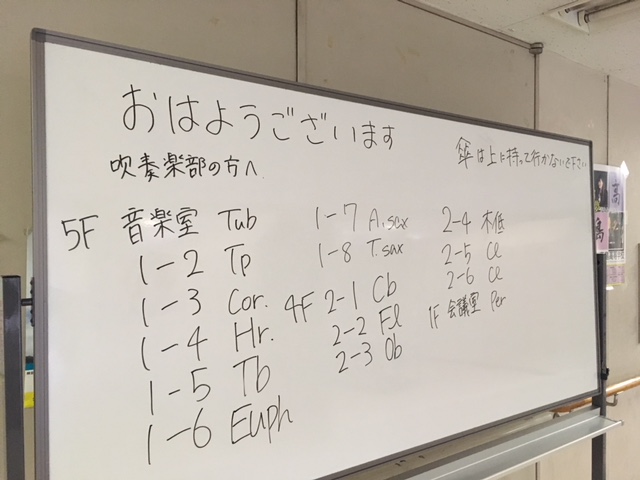 おはようございます
吹奏楽部の方へ
傘は上に持って行かないで下さい
5F 音楽室 Tub
1-2 Tp
1-3 Cor.
1-4 Hr.
1-5 Tb
1-6 Euph
1-7 A.sax
1-8 T.sax
4F 2-1 Cb
2-2 Fl
2-3 Ob
2-4 木低
2-5 Cl
2-6 Cl
1F 会議室 Per
高